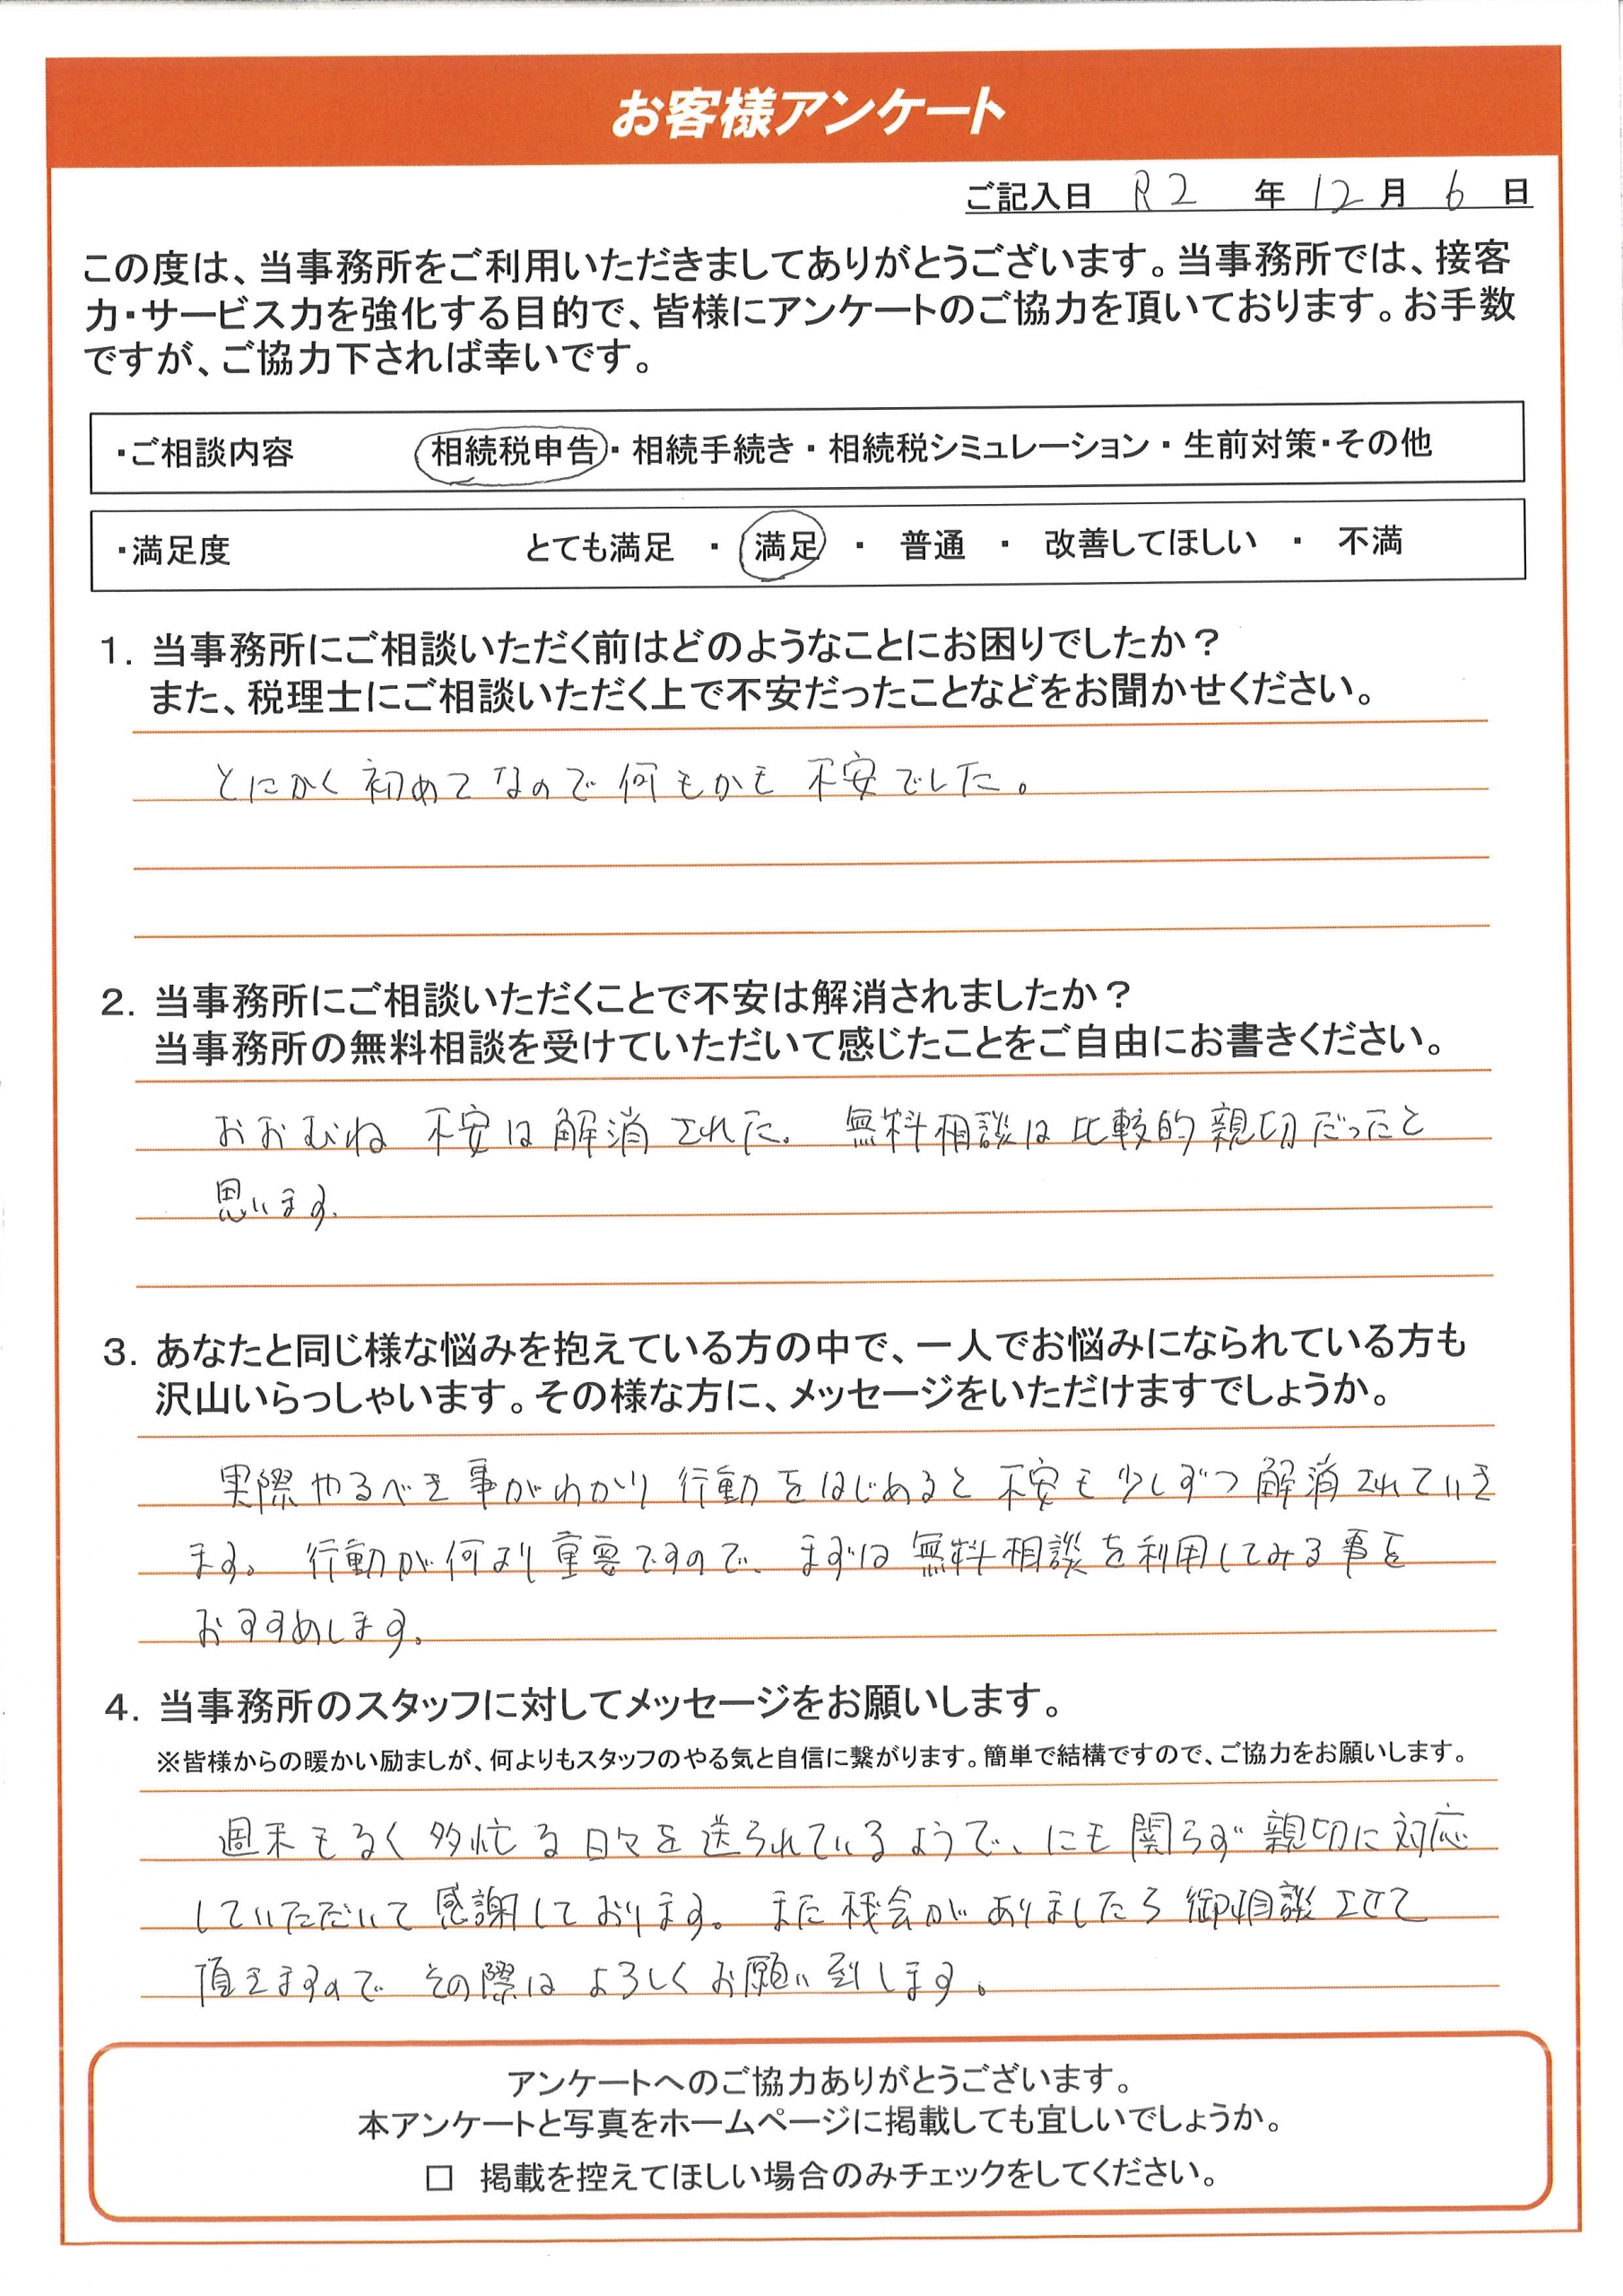 お客様アンケート
ご記入日 R2 年 12 月 6 日
この度は、当事務所をご利用いただきましてありがとうございます。当事務所では、接客
力・サービス力を強化する目的で、皆様にアンケートのご協力を頂いております。お手数
ですが、ご協力下されば幸いです。
・ご相談内容 相続税申告・相続手続き・相続税シミュレーション・生前対策・その他
・満足度 とても満足 ・ 満足 ・ 普通 ・ 改善してほしい ・ 不満
1. 当事務所にご相談いただく前はどのようなことにお困りでしたか？
また、税理士にご相談いただく上で不安だったことなどをお聞かせください。
とにかく初めてなので何もかも不安でした。
2. 当事務所にご相談いただくことで不安は解消されましたか？
当事務所の無料相談を受けていただいて感じたことをご自由にお書きください。
おおむね不安は解消された。無料相談は比較的親切だったと
思います。
3. あなたと同じ様な悩みを抱えている方の中で、一人でお悩みになられている方も
沢山いらっしゃいます。その様な方に、メッセージをいただけますでしょうか。
実際やるべき事がわかり行動をはじめると不安も少しずつ解消されていき
ます。行動が何より重要ですので、まずは無料相談を利用してみる事を
おすすめします。
4. 当事務所のスタッフに対してメッセージをお願いします。
※皆様からの暖かい励ましが、何よりもスタッフのやる気と自信に繋がります。簡単で結構ですので、ご協力をお願いします。
週末もなく多忙な日々を送られているようで、にも関らず親切に対応
していただいて感謝しております。また機会がありましたら御相談させて
頂きますので その際は よろしくお願い致します。
アンケートへのご協力ありがとうございます。
本アンケートと写真をホームページに掲載しても宜しいでしょうか。
□ 掲載を控えてほしい場合のみチェックをしてください。